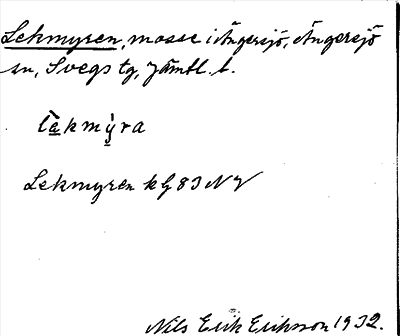 Lekmyren, mosse i Ängersjö, Ängersjö
sn, Svegs tg, Jämtl. l.
lèkmỳra
Lekmyren kG 83 NV
Nils Erik Eriksson 1932.